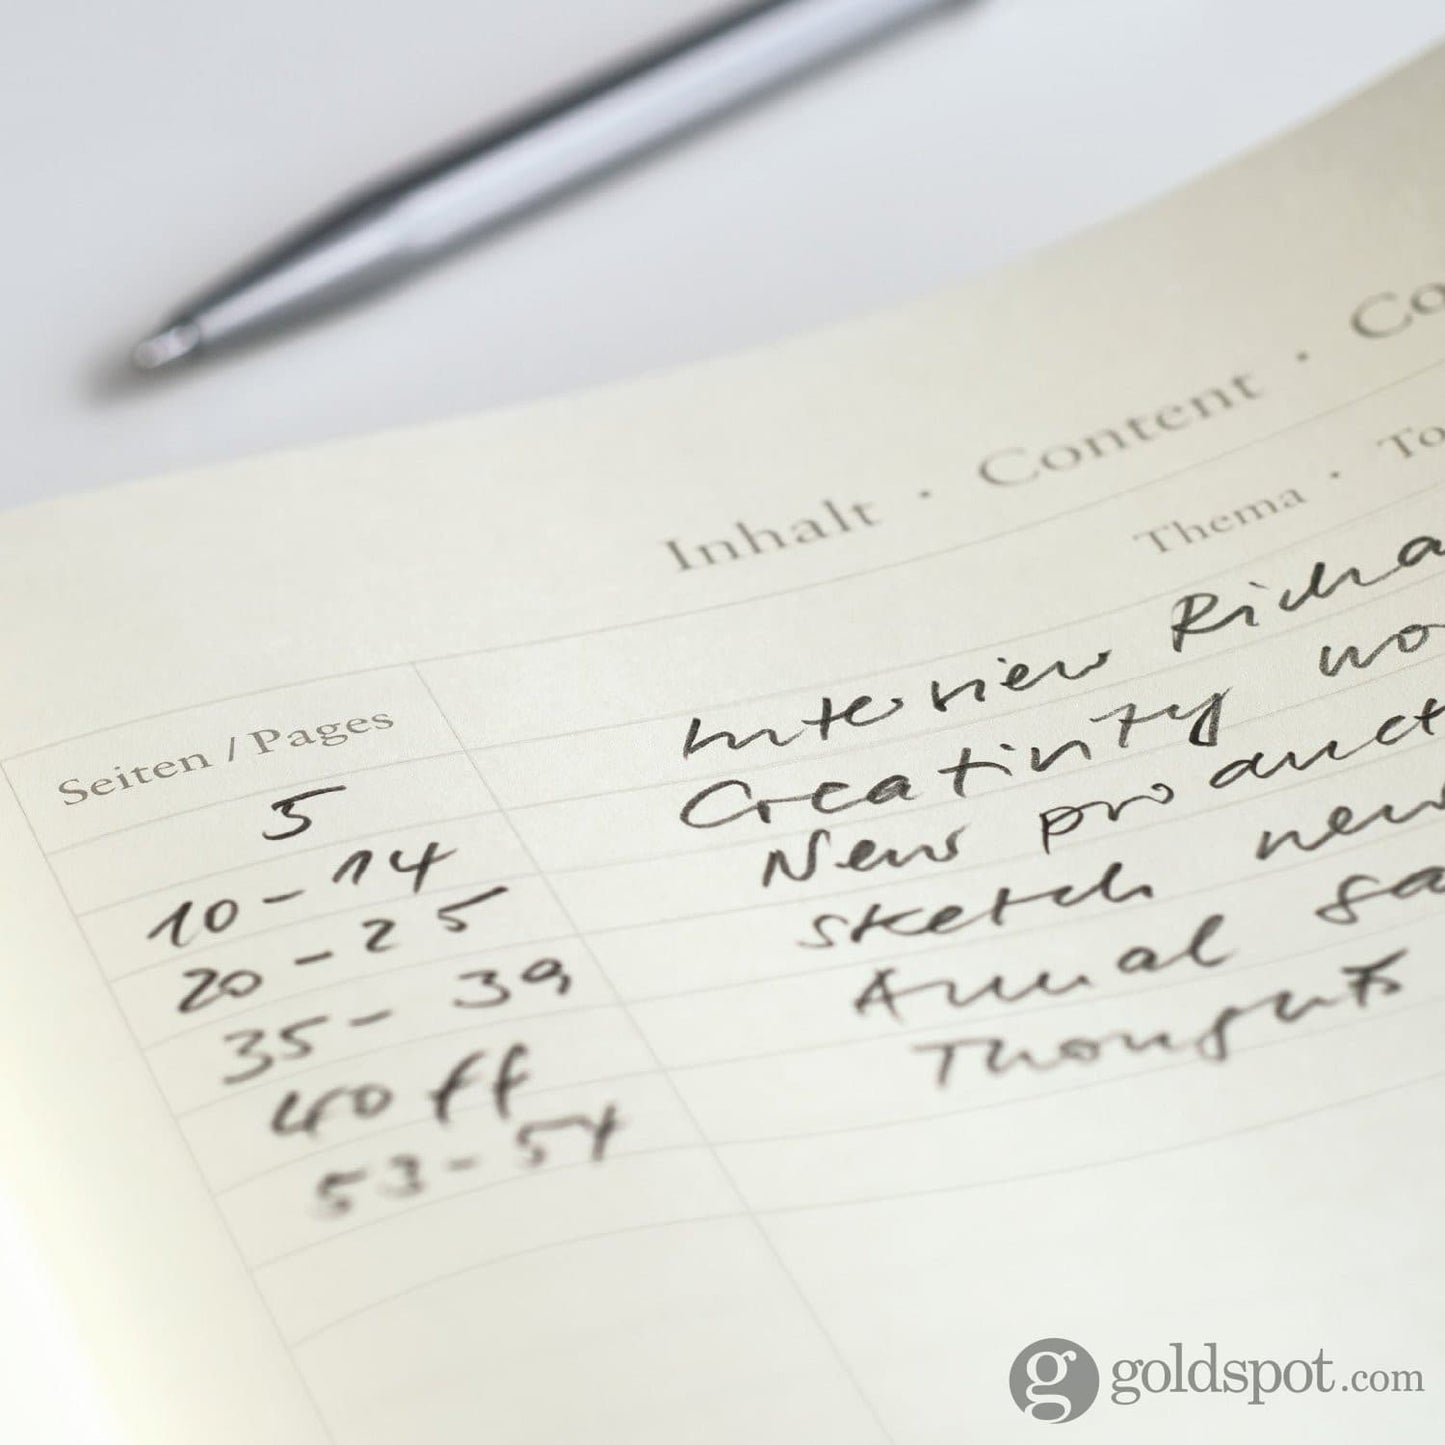 Inhalt · Content · Co
Seiten / Pages Thema · To
5 Interview Richa
10 - 14 Creativity wo
20 - 25 New product
35 - 39 Sketch new
40 ff Annual ga
53 - 54 Thoughts
goldspot.com